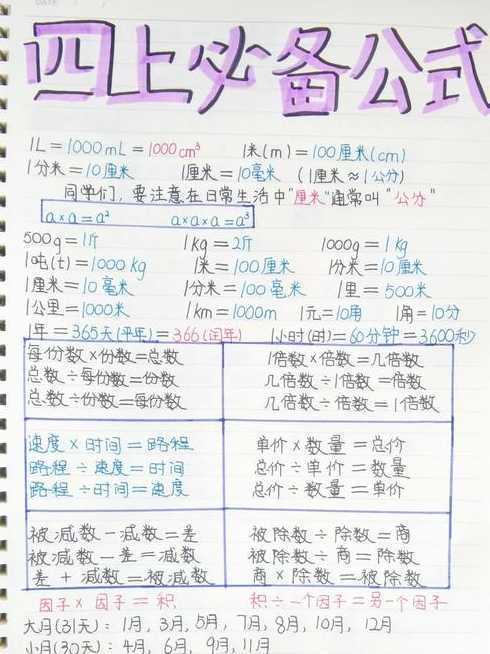 四上必备公式
1L=1000mL=1000cm³ 1米(m)=100厘米(cm)
1分米=10厘米 1厘米=10毫米 (1厘米≈1公分)
同学们,要注意在日常生活中"厘米"通常叫"公分"
a×a=a² a×a×a=a³
500g=1斤 1kg=2斤 1000g=1kg
1吨(t)=1000kg 1米=100厘米 1分米=10厘米
1厘米=10毫米 1分米=100毫米 1里=500米
1公里=1000米 1km=1000m 1元=10角 1角=10分
1年=365天(平年)=366(闰年) 1小时(时)=60分钟=3600秒
每份数×份数=总数
总数÷每份数=份数
总数÷份数=每份数
1倍数×倍数=几倍数
几倍数÷1倍数=倍数
几倍数÷倍数=1倍数
速度×时间=路程
路程÷速度=时间
路程÷时间=速度
单价×数量=总价
总价÷单价=数量
总价÷数量=单价
被减数-减数=差
被减数-差=减数
差+减数=被减数
被除数÷除数=商
被除数÷商=除数
商×除数=被除数
因子×因子=积 积÷一个因子=另一个因子
大月(31天):1月,3月,5月,7月,8月,10月,12月
小月(30天):4月,6月,9月,11月